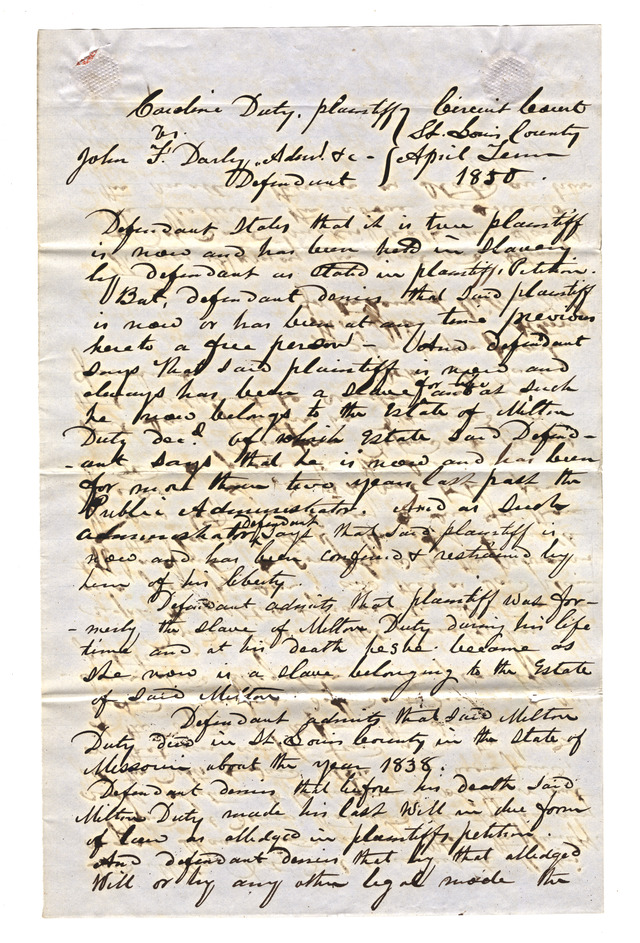 Caroline Duty, plaintiff } Circuit Court
vs. St. Louis County
John F. Darby, Adm! &c - } April Term
Defendant 1850.
Defendant states that it is true plaintiff
is now and has been held in slavery
by defendant as stated in plaintiffs Petition.
But, defendant denies that said plaintiff
is now or has been at any time previous
hereto a free person - And defendant
says that said plaintiff is now and
always has been a slave for life and as such
he now belongs to the Estate of Milton
Duty decd. of which Estate said Defend-
-ant says that he is now and has been
for more than two years last past the
Public Administrator. And as such
administrator Defendant says that said plaintiff is
now and has been confined & restrained by
him of his liberty.
Defendant admits that plaintiff was for-
-merly the slave of Milton Duty during his life
time and at his death she became as
she now is a slave belonging to the Estate
of said Milton.
Defendant admits that said Milton
Duty died in St. Louis County in the State of
Missouri about the year 1838.
Defendant denies that before his death said
Milton Duty made his last Will in due form
of law as alledged in plaintiffs petition.
And defendant denies that by that alledged
Will or by any other legal mode the